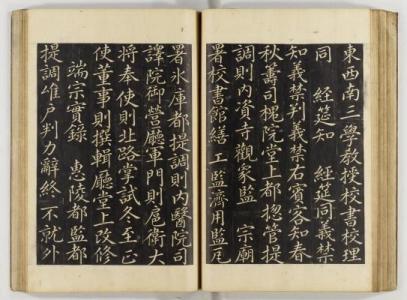 東西南三學教授校書校理
同 經筵知 經筵同義禁
知義禁判義禁右賓客知春
秋壽司槐院堂上都摠管提
調則內資寺觀象監 宗廟
署校書館繕工監濟用監瓦
署氷庫都提調則內醫院司
譯院御營廳軍門則扈衛大
將奉使則北路掌試冬至正
使董事則撰輯廳堂上改修
端宗實錄 惠陵都監都
提調唯戶判力辭終不就外